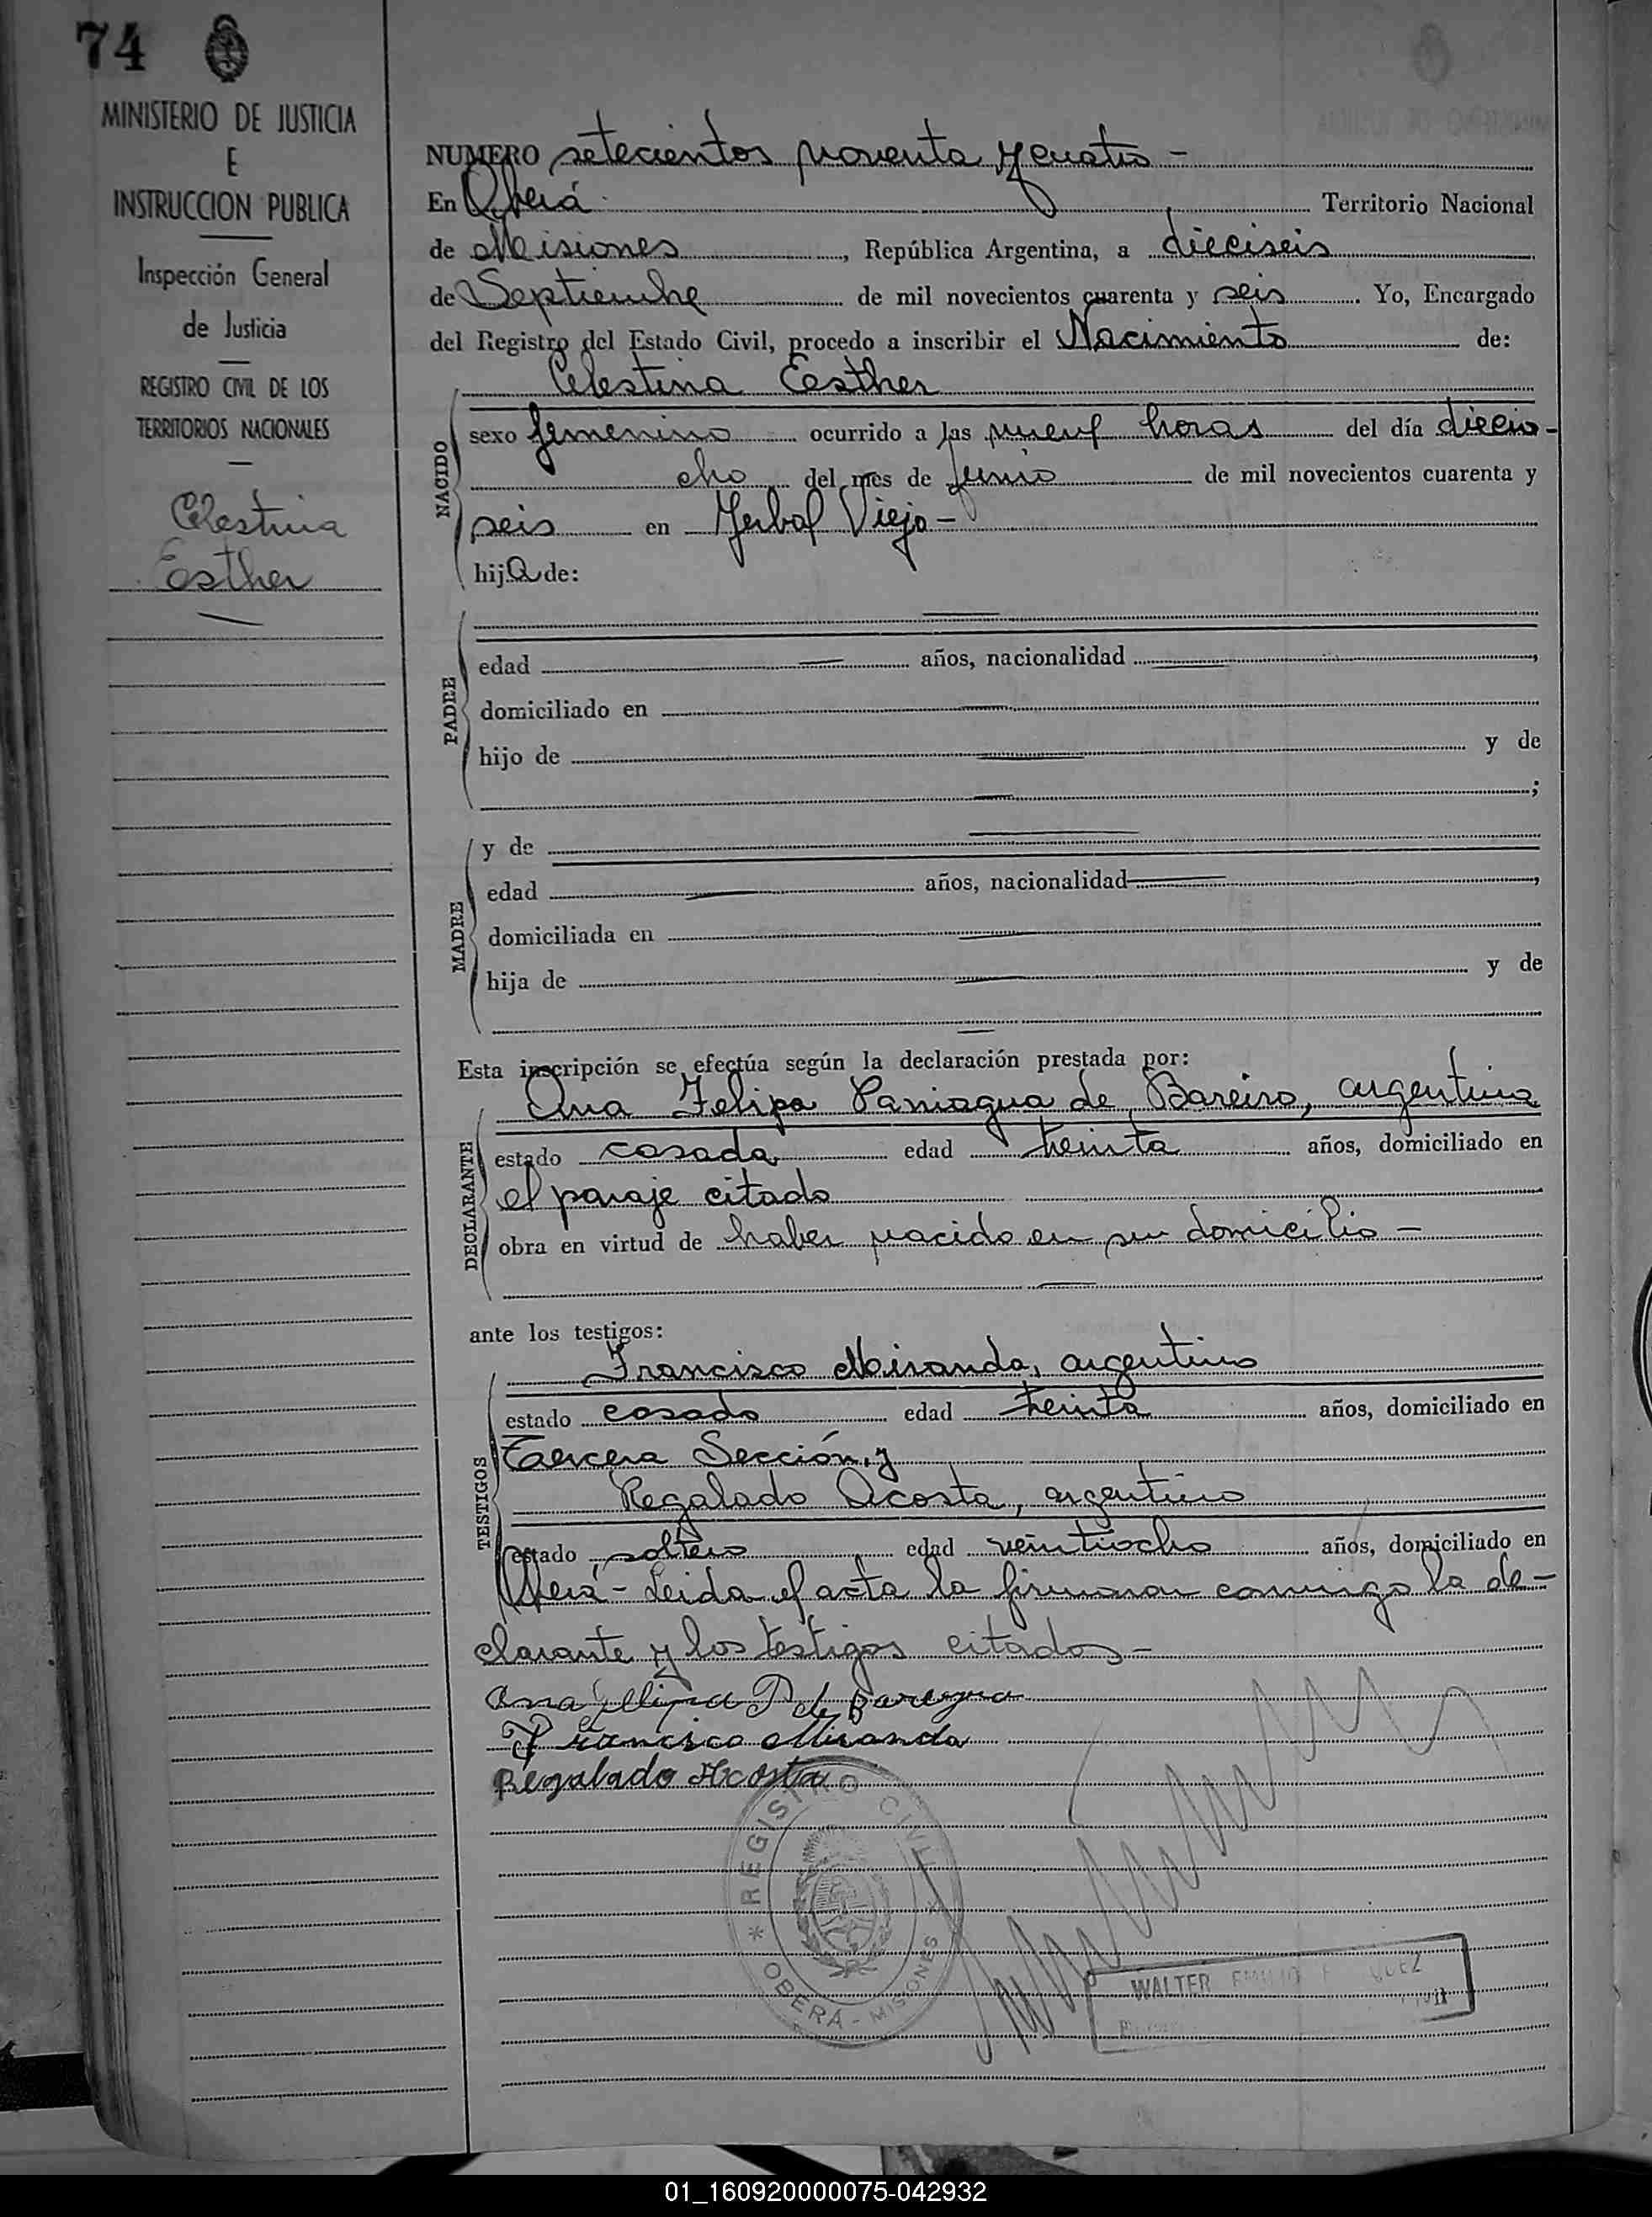 74
MINISTERIO DE JUSTICIA
E
INSTRUCCION PUBLICA
Inspección General
de Justicia
REGISTRO CIVIL DE LOS
TERRITORIOS NACIONALES
Celestina
Esther
NUMERO setecientos noventa y cuatro -
En Oberá Territorio Nacional
de Misiones, República Argentina, a dieciseis
de Septiembre de mil novecientos cuarenta y seis. Yo, Encargado
del Registro del Estado Civil, procedo a inscribir el Nacimiento de:
Celestina Esther
NACIDO
sexo femenino ocurrido a las nueve horas del día diecio-
cho del mes de Junio de mil novecientos cuarenta y
seis en Yerbal Viejo -
hija de:
PADRE
edad años, nacionalidad
domiciliado en
hijo de y de
;
MADRE
y de
edad años, nacionalidad
domiciliada en
hija de y de
Esta inscripción se efectúa según la declaración prestada por:
DECLARANTE
Ana Felipa Paniagua de Bareiro, argentina
estado casada edad treinta años, domiciliado en
el paraje citado
obra en virtud de haber nacido en su domicilio -
ante los testigos:
TESTIGOS
Francisco Miranda, argentino
estado casado edad treinta años, domiciliado en
Tercera Sección, y
Regalado Acosta, argentino
estado soltero edad veintiocho años, domiciliado en
Oberá - Leida el acta la firmaron conmigo la de-
clarante y los testigos citados -
Ana Felipa P de
Francisco Miranda
Regalado Acosta
REGISTRO CIVIL
OBERÁ - MISIONES
WALTER EMILIO
01_160920000075-042932